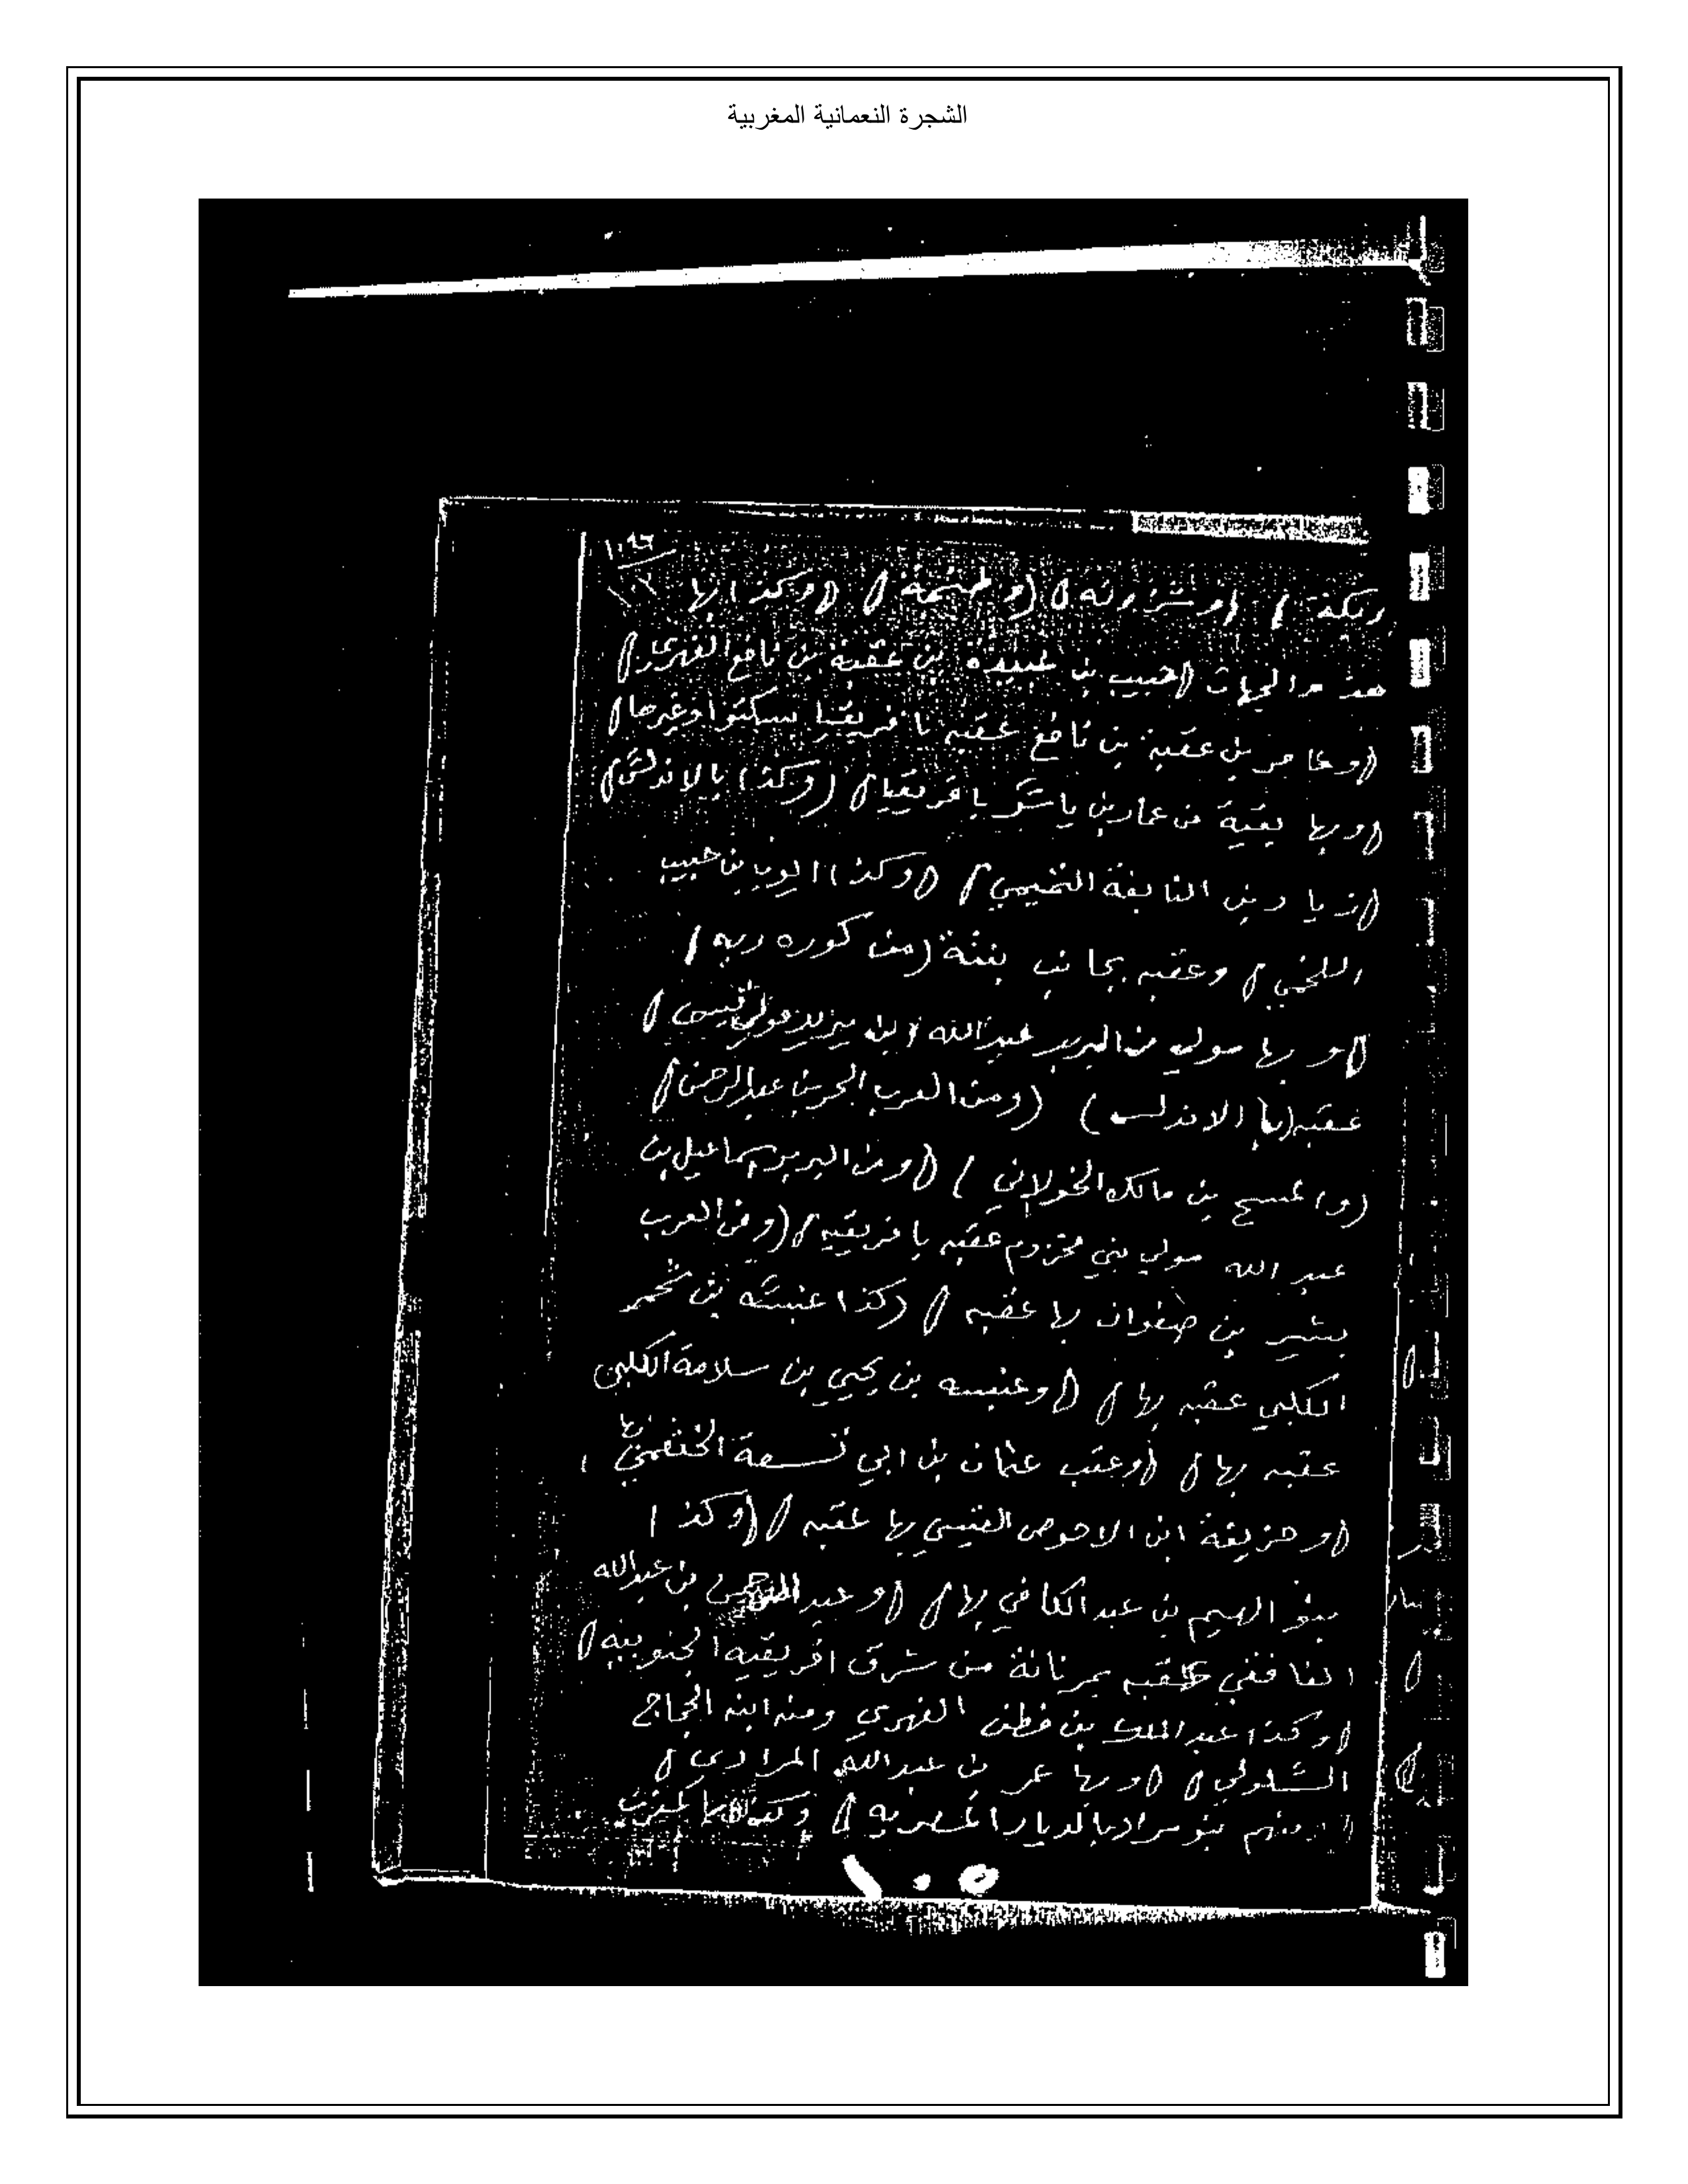 الشجرة النعمانية المغربية
١٠٩٦
(وكذا بها
حبيب بن عبيدة بن عقبة بن نافع الفهري)
(وعامر بن عقبة بن نافع عقبه بافريقيا وغيرها)
(وبها بقية من عمار بن ياسر بافريقيا) (وكذا بالاندلس)
(زياد بن النابغة التميمي) (وكذا ايوب بن حبيب
اللخمي) وعقبه بجانب (من كوره ريه)
(وبها مولي من البربر عبد الله ابن يزيد مولي قيس)
عقبه (با الاندلس) (ومن العرب الحر بن عبد الرحمن)
(والسمح بن مالك الخولاني) (ومن البربر اسماعيل بن
عبد الله مولي بني مخزوم عقبه بافريقيه) (ومن العرب
بشير بن صفوان بها عقبه) (وكذا عنبسه بن
الكلبي عقبه بها) (وعنبسه بن يحيي بن سلامة الكلبي
عقبه بها) (وعقب عثمان بن ابي نسعة الخثعمي بها
(وحزيفة ابن الاحوص القيسي بها عقبه) (وكذا
بنو الهيم بن عبد الكافي بها) (وعبد الرحمن بن عبد الله
الغافقي عقبه من شرق افريقيه الجنوبيه)
(وكذا عبد الملك بن قطن الفهري ومنه ابنه الحجاج
السلولي) (وبها عمر بن عبد الله المرادي)
(ومنهم بنو مراد بالديار المصريه)
١٠٥